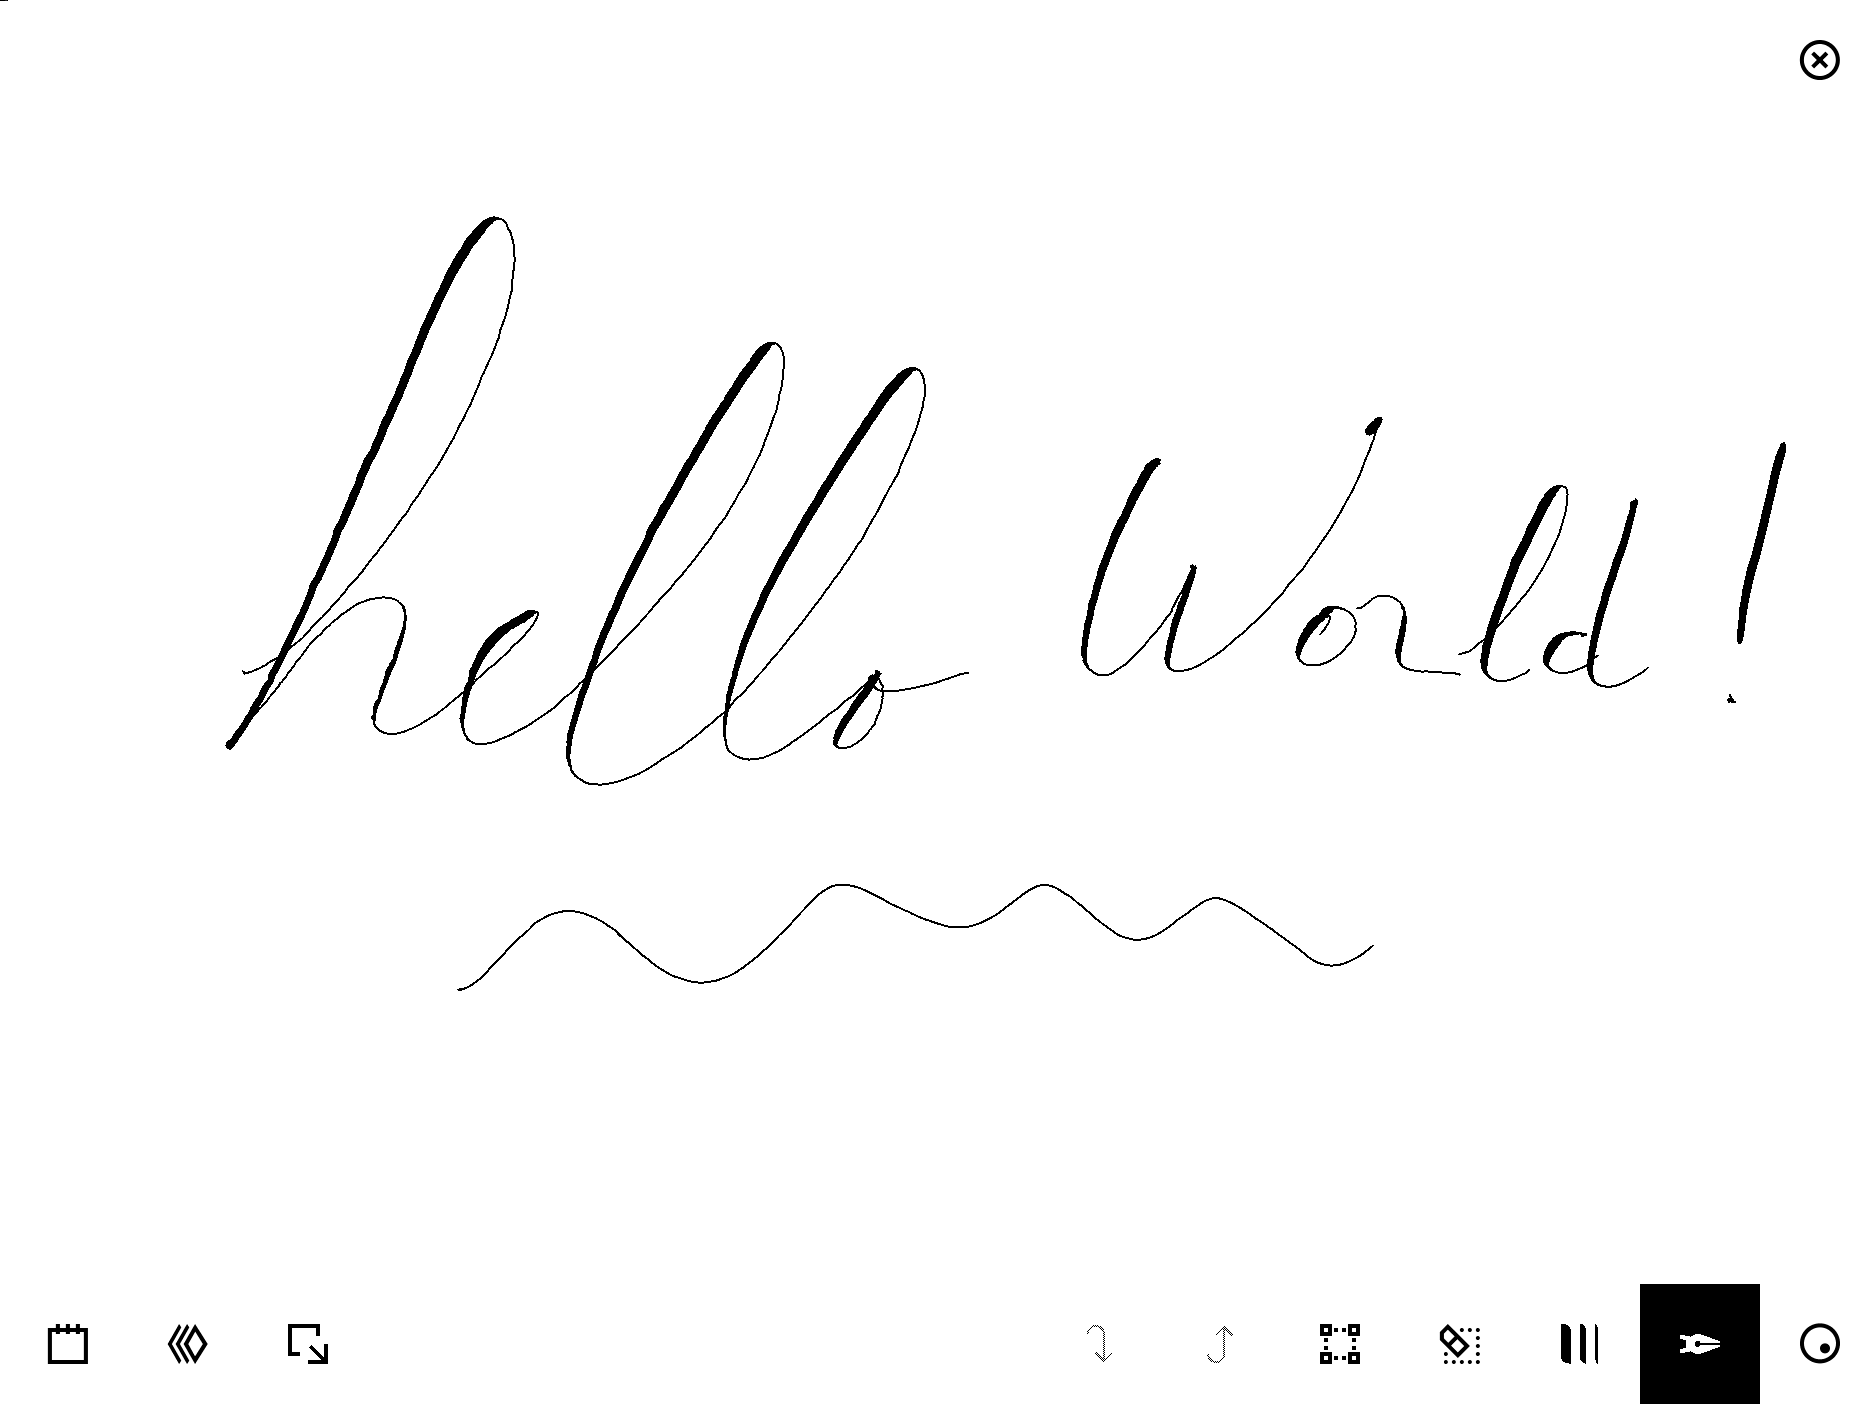 hello World!